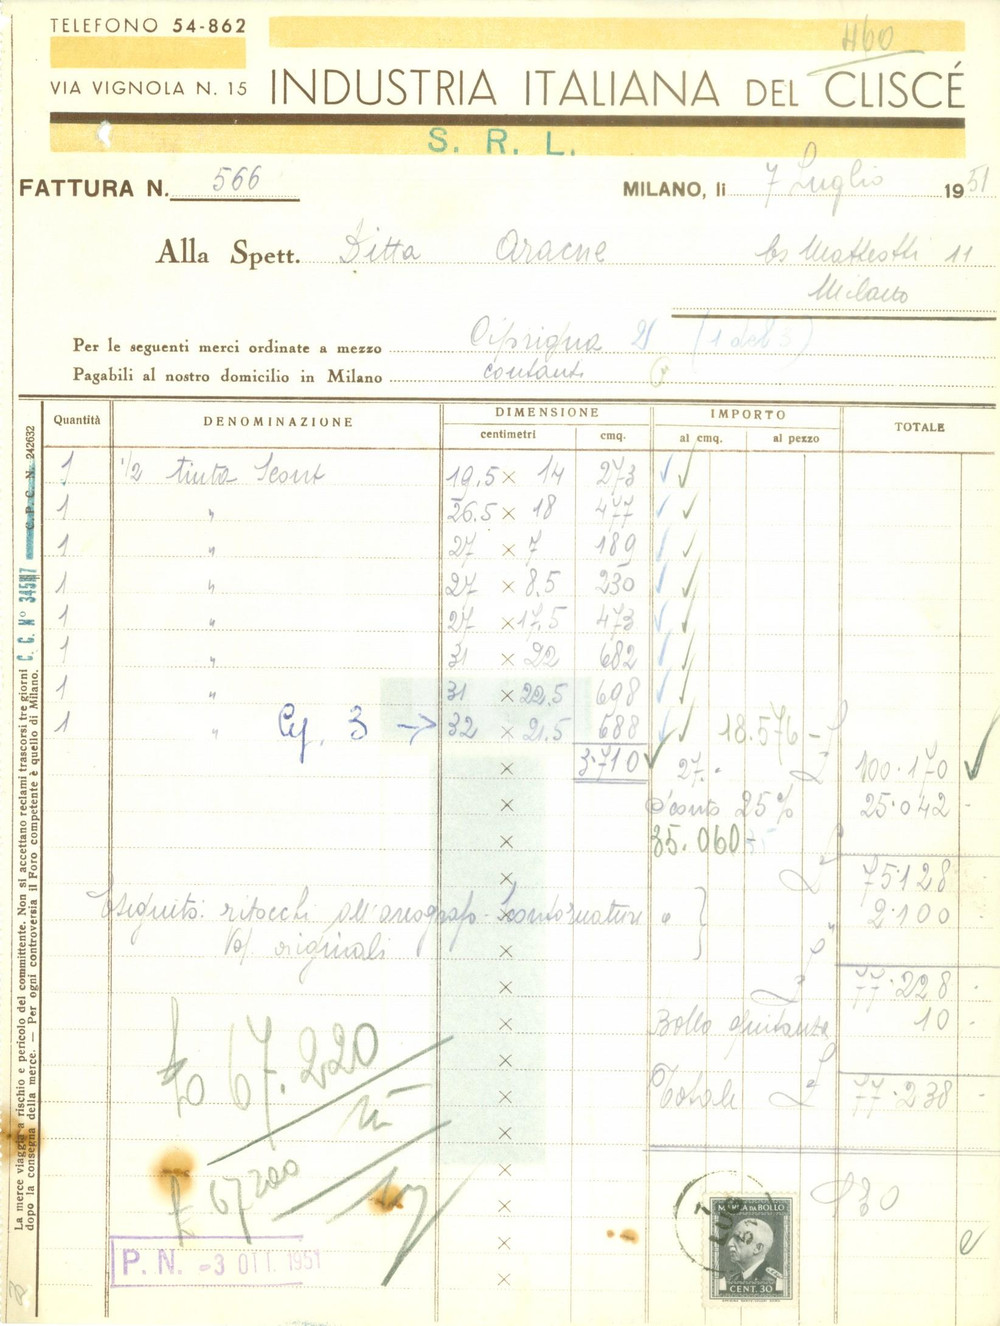 TELEFONO 54-862
460
VIA VIGNOLA N. 15
INDUSTRIA ITALIANA DEL CLISCÉ
S. R. L.
FATTURA N. 566
MILANO, li 7 Luglio 1951
Alla Spett. Ditta Aracne Cs Matteotti 11
Milano
Per le seguenti merci ordinate a mezzo Cipriqua
Pagabili al nostro domicilio in Milano contanti
Quantità DENOMINAZIONE DIMENSIONE IMPORTO TOTALE
centimetri cmq. al cmq. al pezzo
1 1/2 tinta Scont 19.5 × 14 273
1 " 26.5 × 18 477
1 " 27 × 7 189
1 " 27 × 8.5 230
1 " 27 × 17.5 473
1 " 31 × 22 682
1 " 31 × 22.5 698
1 " Cy. 3 → 32 × 21.5 688 18.576 -
× 3.710 27. £ 100.170
× Sconto 25% 25.042
× 35.060
× £ 75128
Eseguito: ritocchi all'areografo Scontornature 2.100
× originali
× £ 77.228
× Bollo quitanza 10
£ 67.220
× Totale £ 77.238
£ 67200
130
MARCA DA BOLLO
CENT. 30
P. N. -3 OTT. 1951
La merce viaggia a rischio e pericolo del committente. Non si accettano reclami trascorsi tre giorni
dopo la consegna della merce. — Per ogni controversia il Foro competente è quello di Milano.
C. C. N° 345117
C. P. C. N. 242632